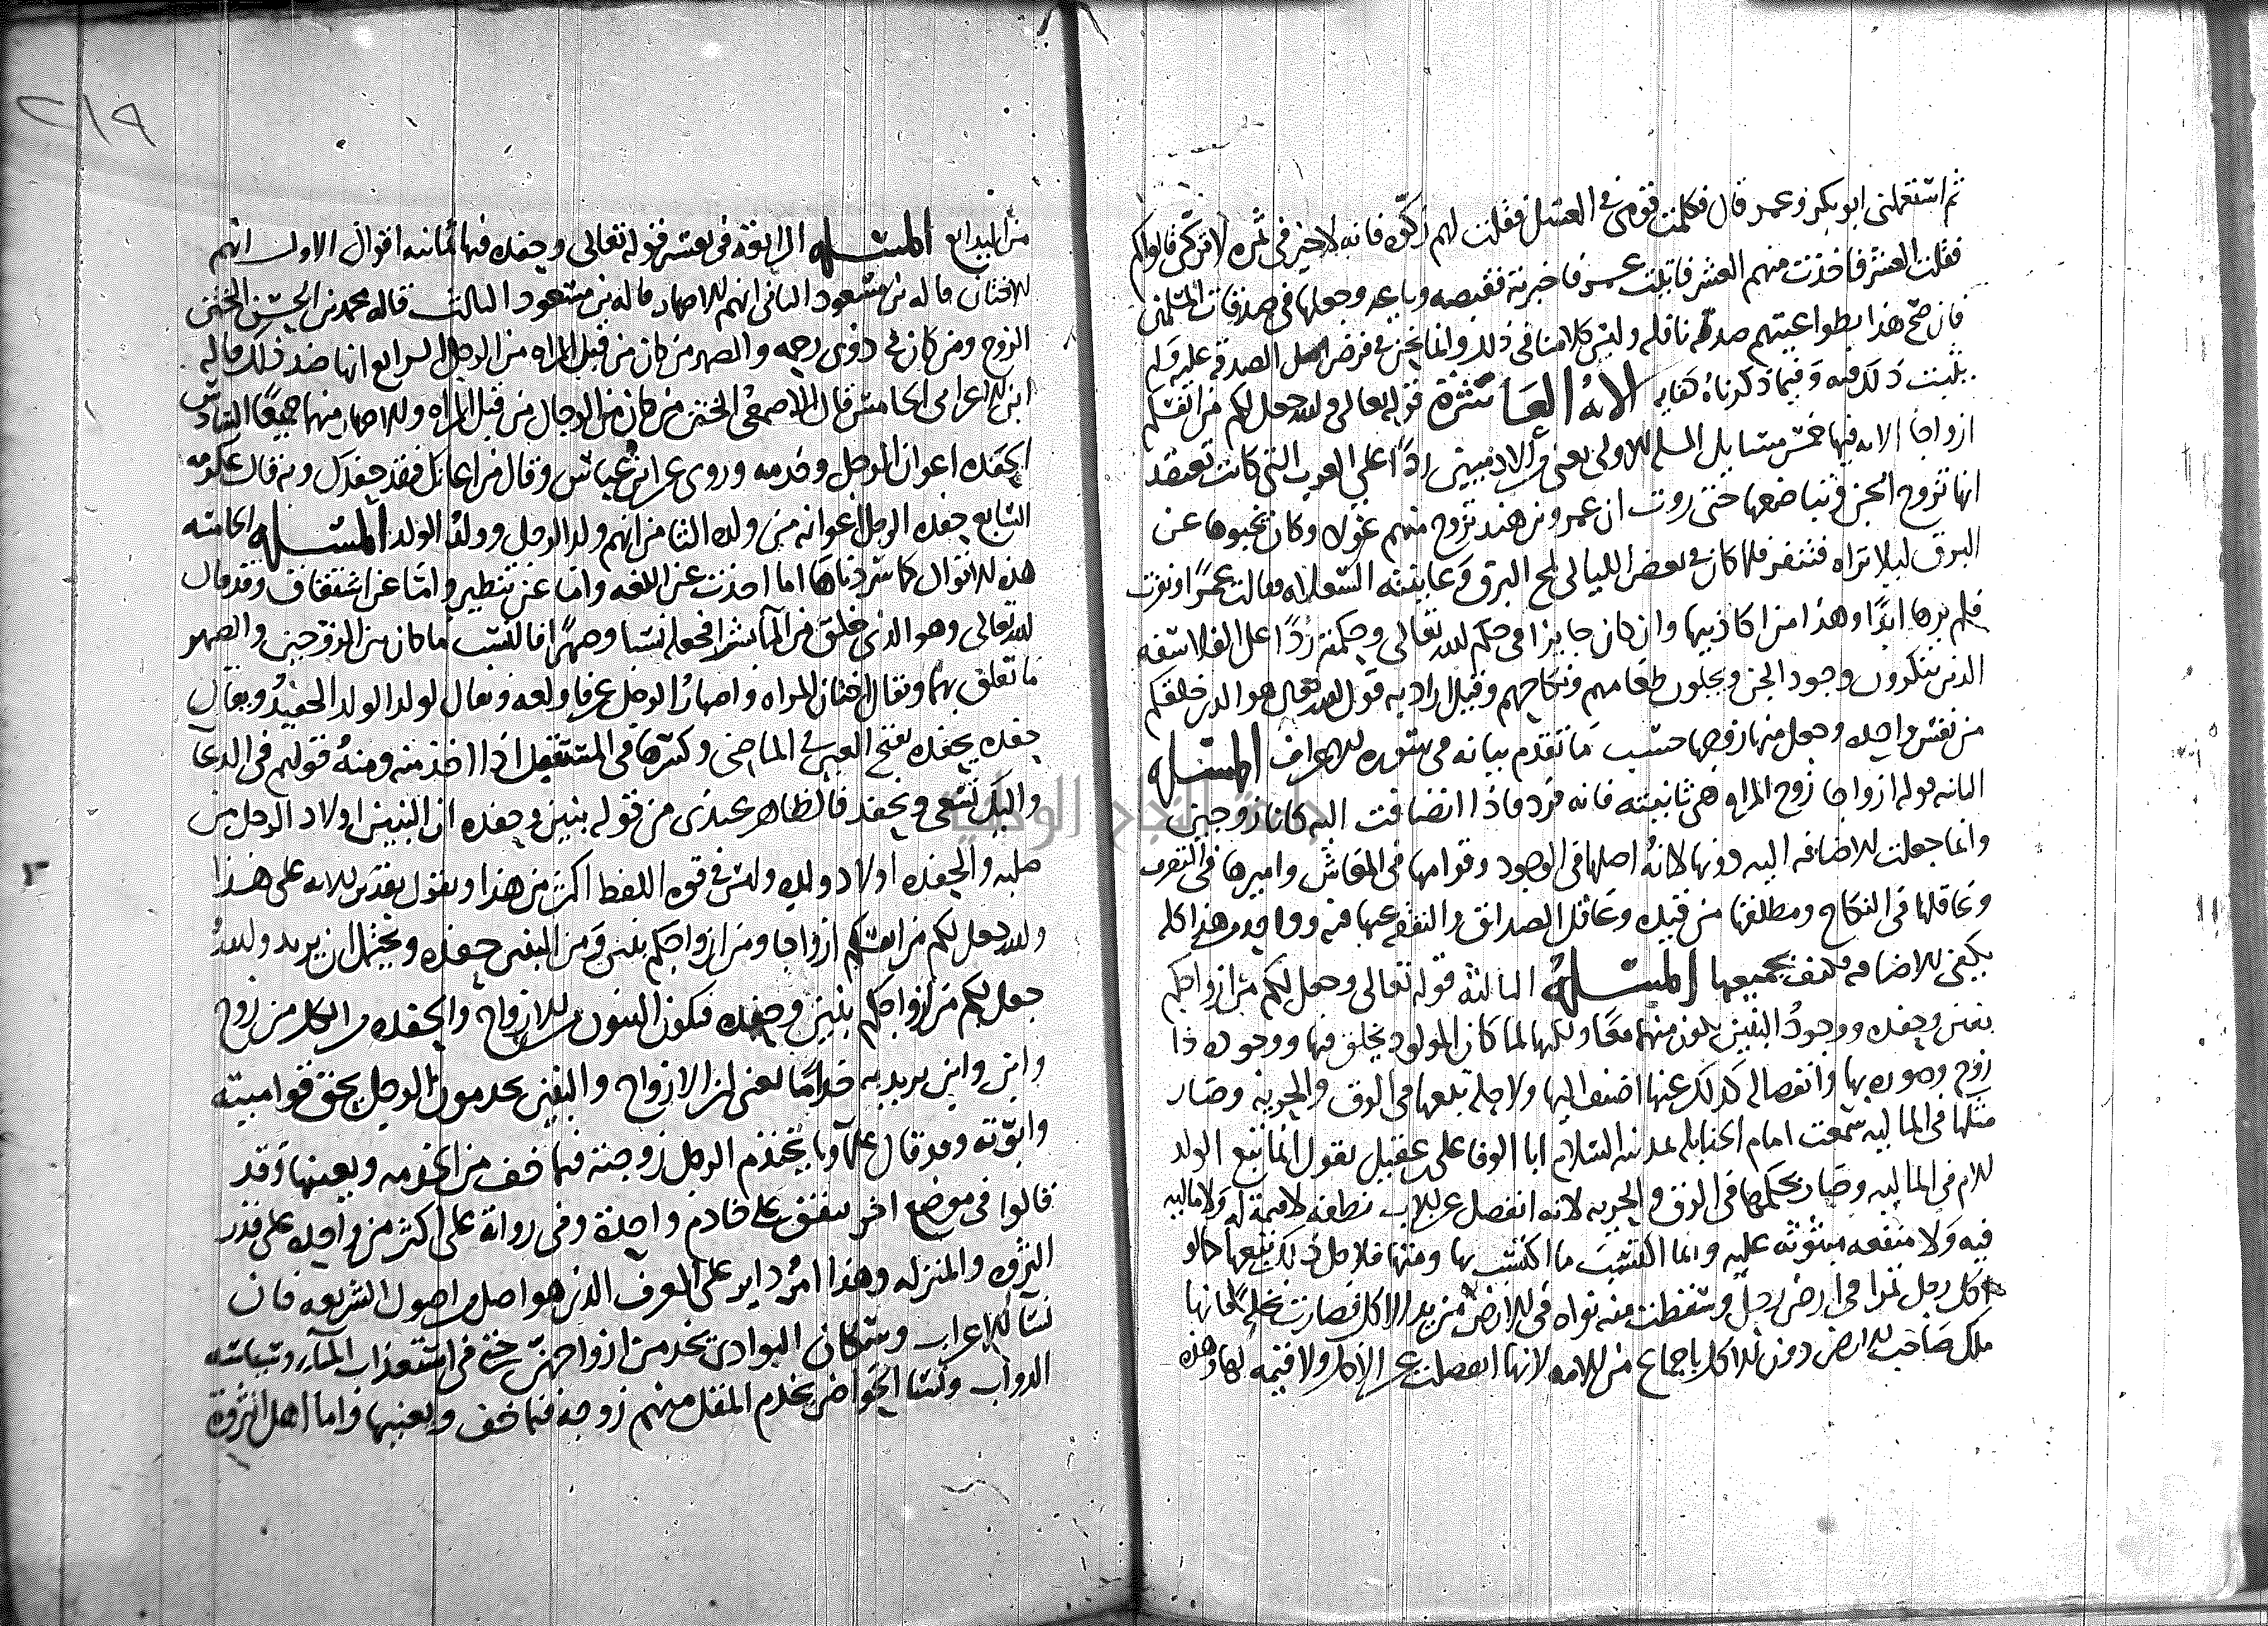 ثم استعملنى ابو بكر وعمر قال فكلمت قومى فى العسل فقلت لهم زكوه فانه لا خير فى ثمره لا تزكى قالوا كم
فقلت العشر فاخذت منهم العشر فاتيت عمر فاخبرته فقبضه وباعه وجعلها فى صدقات المسلمين
فان صح هذا بطواعيتهم صدقة نافله وليس كلامنا فى ذلك وانما نحن فى فرض اصل الصدقة عليه ولم
يثبت ذلك فيه وفيما ذكرناه كفايه الايه العاشرة قوله تعالى والله جعل لكم من انفسكم
ازواجا الايه فيها خمس مسايل المسله الاولى يعنى من الادميين ردا على العرب التى كانت تعتقد
انها تزوج الجن وتباضعها حتى روت ان عمرو بن هند تزوج منهم غولا وكان يخبوها عن
البرق ليلا تراه فتنفر فلما كان فى بعض الليالى لمح البرق وعاينته السعلاه فقالت عمرو ونفرت
فلم يرها ابدا وهذا من اكاذيبها وان كان جايزا فى حكم الله تعالى وحكمته ردا على الفلاسفه
الذين ينكرون وجود الجن ويحيلون طعامهم ونكاحهم وقيل اراد به قول الله تعالى هو الذى خلقكم
من نفس واحده وجعل منها زوجها حسب ما تقدم بيانه فى سوره الاعراف المسله
الثانيه قوله ازواجا زوج المراه هى ثانيته فانه فرد فاذا انضافت اليه كانا زوجين
وانما جعلت الاضافه اليه دونها لانه اصلها فى الوجود وقوامها فى المعاش واميرها فى التصرف
وعاقلها فى النكاح ومطلقها من قيده وعاقل الصداق والنفقه عنها فيه وواحد من هذا كله
يكفى للاضافه فكيف بجميعها المسله الثالثة قوله تعالى وجعل لكم من ازواجكم
بنين وحفده ووجود البنين يكون منهما معا ولكنه لما كان المولود يخلق فيها ووجوده ذا
روح وصوره بها وانفصاله كذلك عنها اضيف اليها ولاجله تبعها فى الرق والحريه وصار
مثلها فى الماليه سمعت امام الحنابله بمدينه السلام ابا الوفا على بن عقيل يقول انما تبع الولد
للام فى الماليه وصار بحكمها فى الرق والحريه لانه انفصل عن الاب نطفه لا قيمة له ولا ماليه
فيه ولا منفعه مبثوثه عليه وانما اكتسب ما اكتسب بها ومنها فلاجل ذلك تبعها كما لو
اكل رجل تمرا فى ارض رجل وسقطت منه نواه فى الارض من يد الاكل فصارت نخله فانها
ملك صاحب الارض دون الاكل باجماع من الامه لانها انفصلت عن الاكل ولا قيمه لها وهذه
٢١٩
من البدايع المسله الرابعة فى تفسير قوله تعالى وحفده فيها ثمانيه اقوال الاول انهم
الاختان قاله بن مسعود الثانى انهم الاصهار قاله بن مسعود الثالث قاله محمد بن الحسن الختن
الزوج ومن كان من ذوى رحمه والصهر من كان من قبل المراه من الرجال الرابع انها ضد ذلك قاله
ابن الاعرابى الخامس قال الاصمعى الختن من كان من الرجال من قبل المراه والاصهار منهما جميعا السادس
الحفده اعوان الرجل وخدمه وروى عن ابن عباس وقال من اعانك فقد حفدك وبه قال عكرمه
السابع حفده الرجل اعوانه من ولده الثامن انهم ولد الرجل وولد الولد المسله الخامسه
هذه الاقوال كما سردناها اما اخذت عن اللغه واما عن تنظير واما عن اشتقاق وقد قال
الله تعالى وهو الذى خلق من الما بشرا فجعله نسبا وصهرا فالنسب ما كان بين الزوجين والصهر
ما تعلق بهما ويقال اختان المراه واصهار الرجل عرفا ولغه ويقال لولد الولد الحفيد ويقال
حفده يحفده بفتح العين فى الماضى وكسرها فى المستقبل اذا خدمه ومنه قولهم فى الدعا
واليك نسعى ونحفد فالظاهر عندى من قوله بنين وحفده ان البنين اولاد الرجل من
صلبه والحفده اولاد ولده وليس فى قوه اللفظ اكثر من هذا ونقول تقدير الايه على هذا
والله جعل لكم من انفسكم ازواجا ومن ازواجكم بنين ومن البنين حفده ويحتمل ان يريد والله
جعل لكم من ازواجكم بنين وحفده فيكون البنون من الازواج والحفده من الكل من زوج
وابن واين يريد به خداما يعنى ان الازواج والبنين يخدمون الرجل بحق قواميته
وابوته وقد قال علماونا يخدم الرجل زوجته فيما خف من الخدمه ويعينها وقد
قالوا فى موضع اخر ينفق على خادم واحدة وفى رواية على اكثر من واحده على قدر
الثروه والمنزله وهذا امر داير على العرف الذى هو اصل من اصول الشريعه فان
نسا الاعراب وسكان البوادى يخدمن ازواجهن حتى فى استعذاب الما وسياسه
الدواب ونسا الحواضر يخدم المقل منهم زوجه فيما خف ويعينها واما اهل الثروة